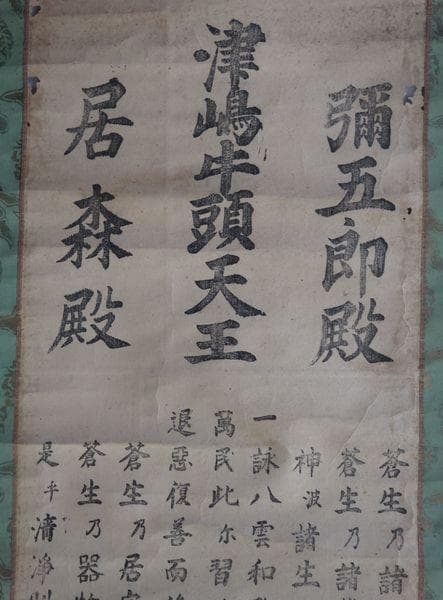 彌五郎殿
津嶋牛頭天王
居森殿
蒼生乃諸
蒼生乃諸
神波諸生
一詠八雲和
萬民此尓習
退惡復善而
蒼生乃居
蒼生乃器
是乎清淨